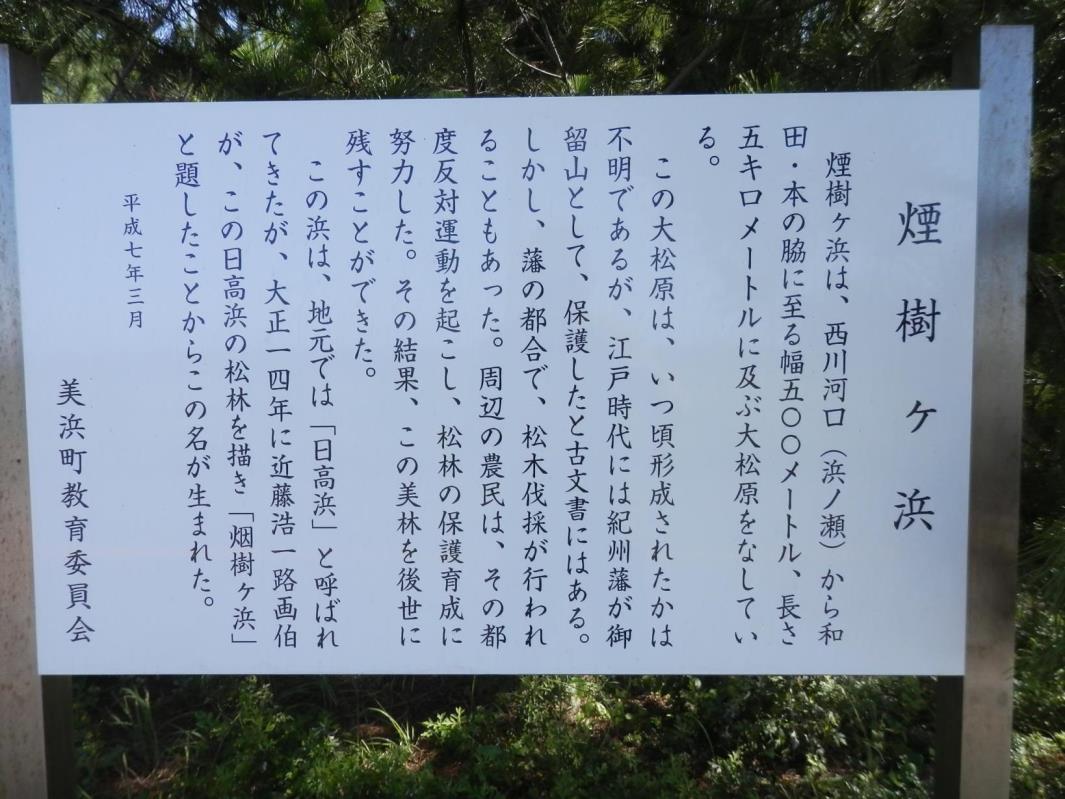 煙樹ヶ浜
煙樹ヶ浜は、西川河口（浜ノ瀬）から和
田・本の脇に至る幅五〇〇メートル、長さ
五キロメートルに及ぶ大松原をなしてい
る。
この大松原は、いつ頃形成されたかは
不明であるが、江戸時代には紀州藩が御
留山として、保護したと古文書にはある。
しかし、藩の都合で、松木伐採が行われ
ることもあった。周辺の農民は、その都
度反対運動を起こし、松林の保護育成に
努力した。その結果、この美林を後世に
残すことができた。
この浜は、地元では「日高浜」と呼ばれ
てきたが、大正一四年に近藤浩一路画伯
が、この日高浜の松林を描き「烟樹ヶ浜」
と題したことからこの名が生まれた。
平成七年三月
美浜町教育委員会